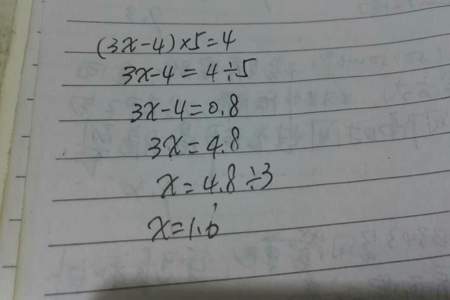 (3x-4)×5=4
3x-4=4÷5
3x-4=0.8
3x=4.8
x=4.8÷3
x=1.6